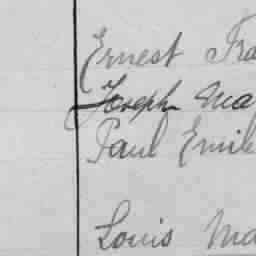 Ernest Fra
Joseph Ma
Paul Emile
Louis Ma